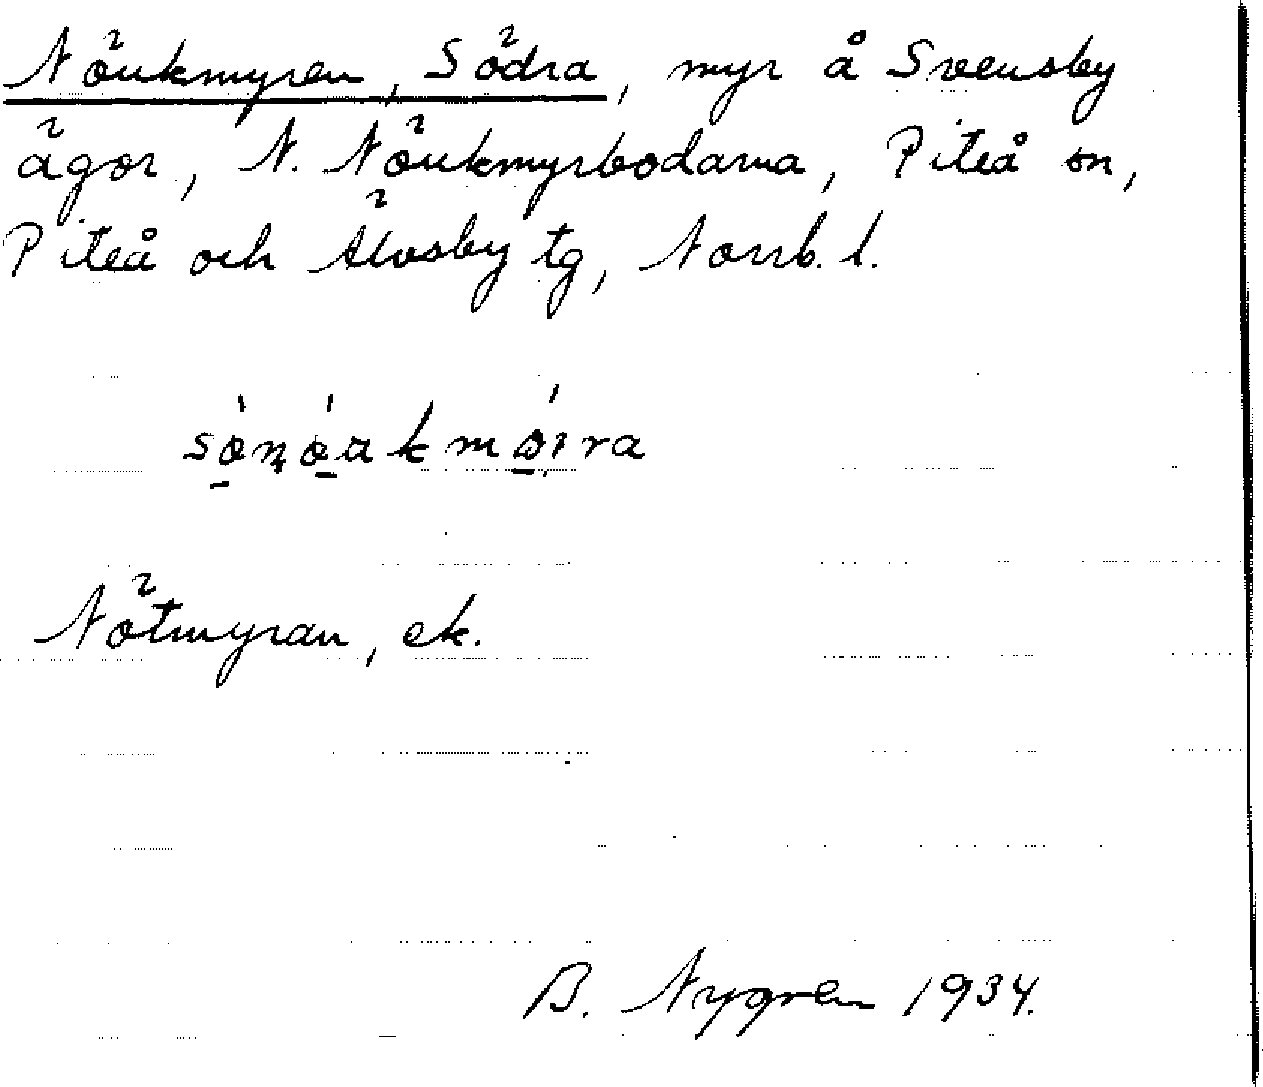 Nöukmyren, Södra, myr å Svensby
ägor, N. Nöukmyrbodarna, Piteå sn,
Piteå och Älvsby tg, Norrb. l.
Nötmyran, ek.
B. Nygren 1934.